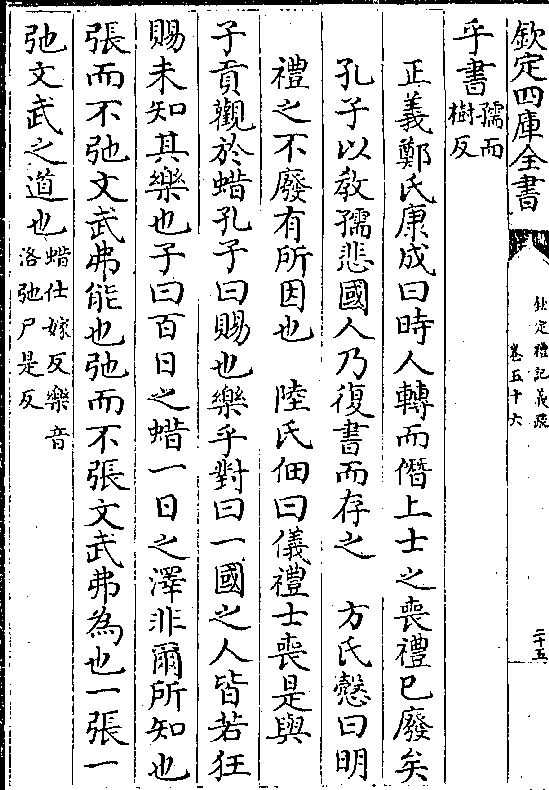 欽定四庫全書
欽定禮記義疏
卷五十六
二十五
乎書孺而
樹反
正義鄭氏康成曰時人轉而僭上士之喪禮已廢矣
孔子以教孺悲國人乃復書而存之 方氏慤曰明
禮之不廢有所因也 陸氏佃曰儀禮士喪是與
子貢觀於蜡孔子曰賜也樂乎對曰一國之人皆若狂
賜未知其樂也子曰百日之蜡一日之澤非爾所知也
張而不弛文武弗能也弛而不張文武弗為也一張一
弛文武之道也蜡仕嫁反樂音
洛弛尸是反